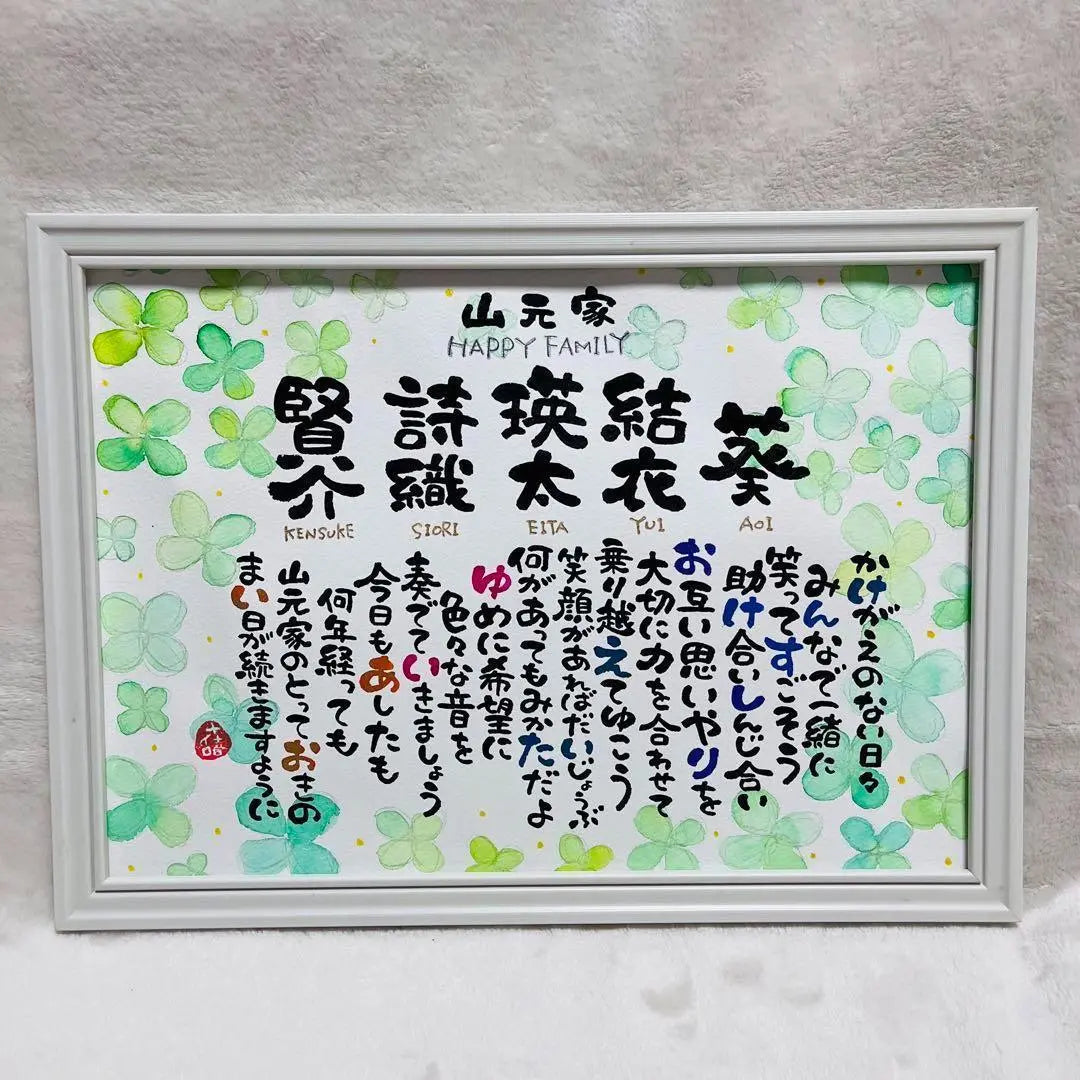 山元家
HAPPY FAMILY
賢介 詩織 瑛太 結衣 葵
KENSUKE SIORI EITA YUI AOI
かけがえのない日々
みんなで一緒に
笑ってすごそう
助け合いしんじ合い
お互い思いやりを
大切に力を合わせて
乗り越えてゆこう
笑顔があればだいじょうぶ
何があってもみかただよ
ゆめに希望に
色々な音を
奏でていきましょう
今日もあしたも
何年経っても
山元家のとっておきの
まい日が続きますように